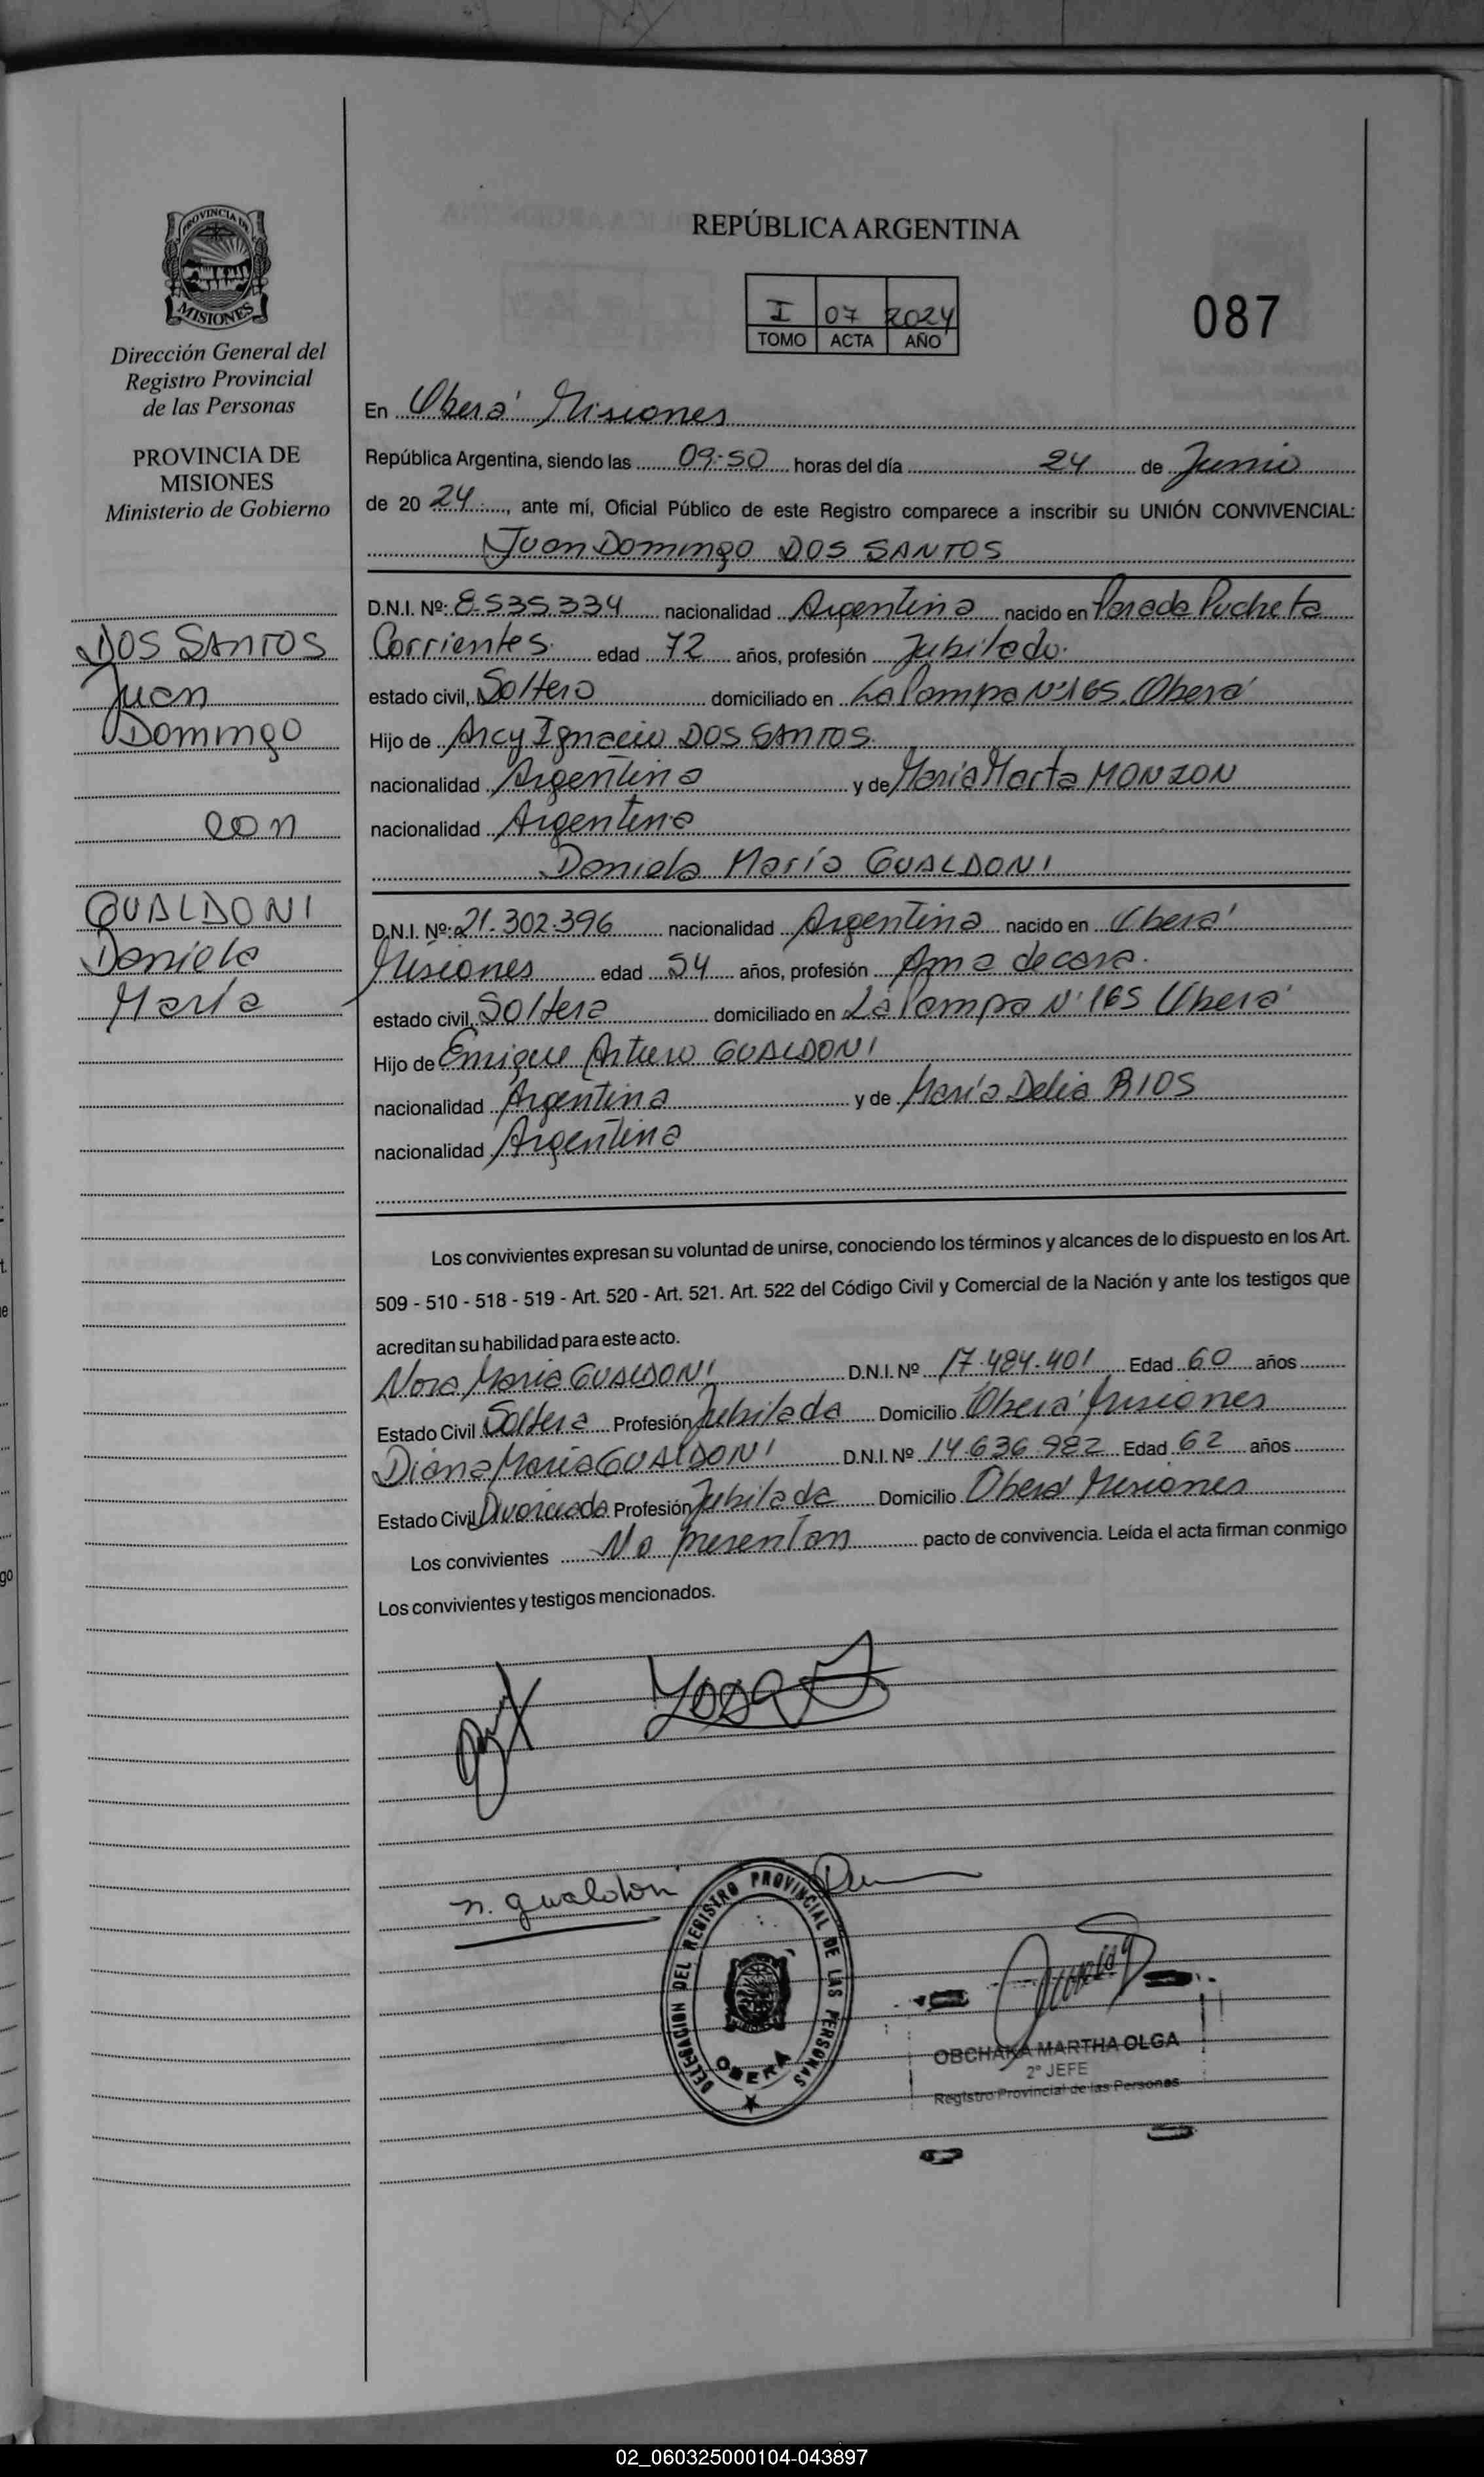 PROVINCIA DE
MISIONES
Dirección General del
Registro Provincial
de las Personas
PROVINCIA DE
MISIONES
Ministerio de Gobierno
DOS SANTOS
Juan
Domingo
con
GUALDONI
Daniela
María
REPÚBLICA ARGENTINA
I 07 2024
TOMO ACTA AÑO
087
En Oberá Misiones
República Argentina, siendo las 09:50 horas del día 24 de Junio
de 20 24, ante mí, Oficial Público de este Registro comparece a inscribir su UNIÓN CONVIVENCIAL:
Juan Domingo DOS SANTOS
D.N.I. Nº: 8.535.334 nacionalidad Argentina nacido en Parada Pucheta
Corrientes. edad 72 años, profesión Jubilado.
estado civil, Soltero domiciliado en La Pampa Nº165. Oberá
Hijo de Arcy Ignacio DOS SANTOS.
nacionalidad Argentina y de María Marta MONZON
nacionalidad Argentina
Daniela María GUALDONI
D.N.I. Nº: 21.302.396 nacionalidad Argentina nacido en Oberá
Misiones edad 54 años, profesión Ama de casa.
estado civil, Soltera domiciliado en La Pampa Nº 165 Oberá
Hijo de Enrique Arturo GUALDONI
nacionalidad Argentina y de María Delia RIOS
nacionalidad Argentina
Los convivientes expresan su voluntad de unirse, conociendo los términos y alcances de lo dispuesto en los Art.
509 - 510 - 518 - 519 - Art. 520 - Art. 521. Art. 522 del Código Civil y Comercial de la Nación y ante los testigos que
acreditan su habilidad para este acto.
Nora María GUALDONI D.N.I. Nº 17.484.401 Edad 60 años
Estado Civil Soltera Profesión Jubilada Domicilio Oberá Misiones
Diana María GUALDONI D.N.I. Nº 14.636.982 Edad 62 años
Estado Civil Divorciada Profesión Jubilada Domicilio Oberá Misiones
Los convivientes No presentan pacto de convivencia. Leída el acta firman conmigo
Los convivientes y testigos mencionados.
n. gualdoni
DELEGACION DEL REGISTRO PROVINCIAL DE LAS PERSONAS
OBERA
OBCHAKA MARTHA OLGA
2º JEFE
Registro Provincial de las Personas
02_060325000104-043897